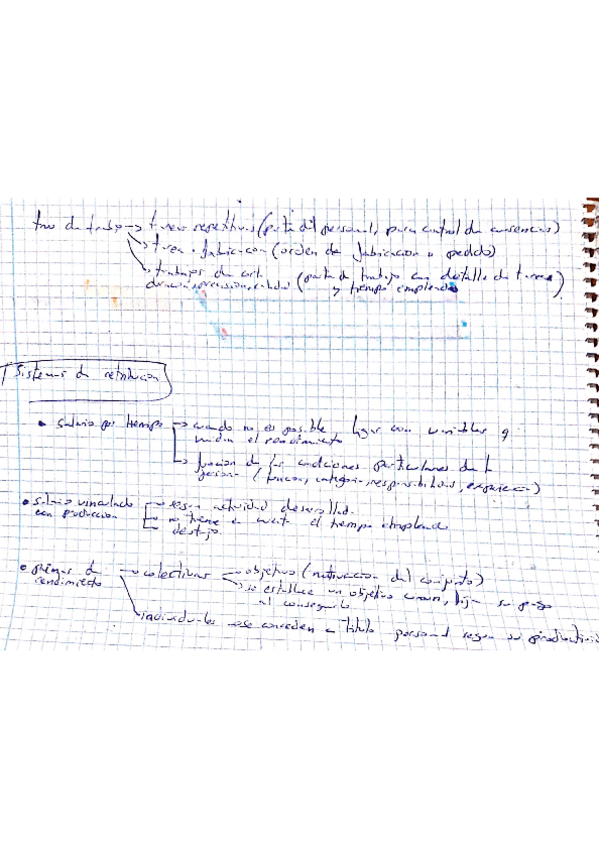 de trabajo → tareas repetitivas (parte del personal, para control de ausencias)
→ tarea fabricacion (orden de fabricacion o pedido)
→ trabajos de corta (parte de trabajo con detalle de tareas
y tiempo empleado)
Sistemas de retribucion
• Salario por tiempo → cuando no es posible ligar con variables q
midan el rendimiento
→ funcion de las condiciones particulares de la
persona (funcion, categoria, responsabilidad, experiencia)
• salario vinculado — segun actividad desarrollada
con produccion — no tiene en cuenta el tiempo empleado
— destajo.
• primas de → colectivas → objetivo (motivacion del conjunto)
rendimiento → se establece un objetivo comun, su pago
al conseguirlo
individuales → se conceden a titulo personal segun su